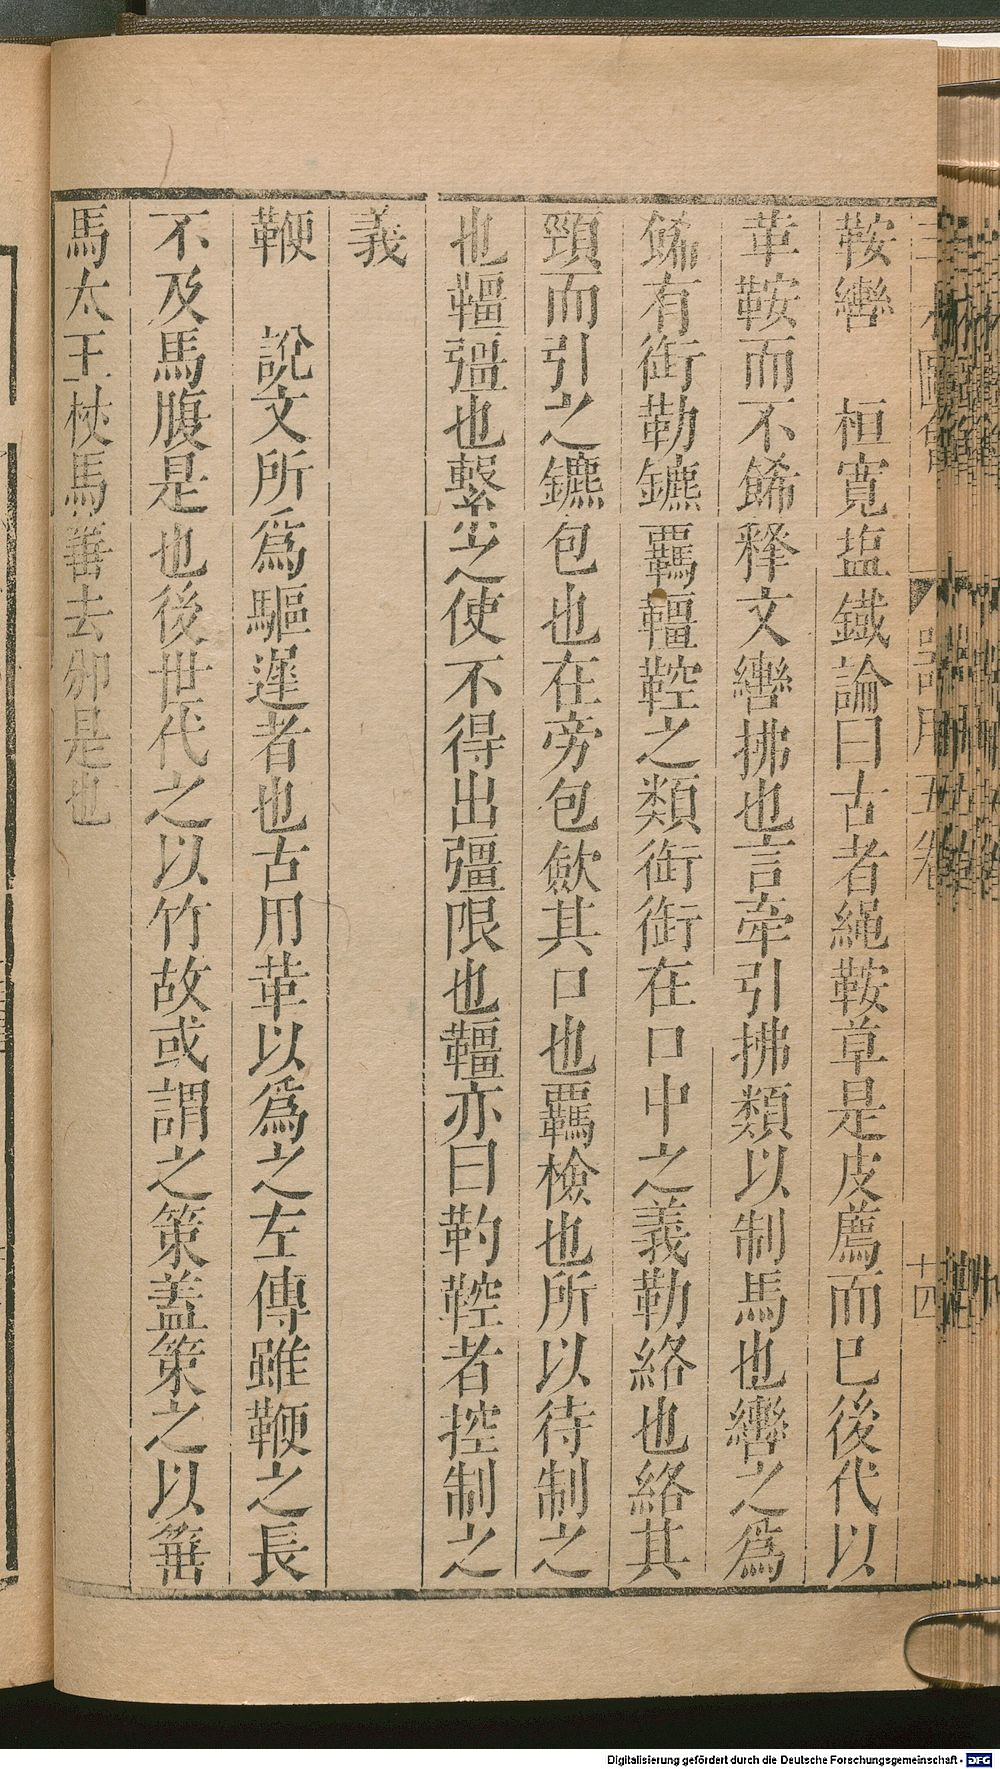 鞍轡 桓寬塩鐵論曰古者繩鞍草是皮薦而已後代以
革鞍而不餙释文轡拂也言牽引拂類以制馬也轡之爲
餙有銜勒鑣羈韁鞚之類銜銜在口中之義勒絡也絡其
頸而引之鑣包也在旁包歛其口也羈檢也所以待制之
也韁彊也繫之使不得出彊限也韁亦曰靮鞚者控制之
義
鞭 說文所爲驅遲者也古用革以爲之左傳雖鞭之長
不及馬腹是也後世代之以竹故或謂之策蓋策之以箠
馬太王杖馬箠去邠是也
三才圖會
器用五卷
十四
Digitalisierung gefördert durch die Deutsche Forschungsgemeinschaft - DFG